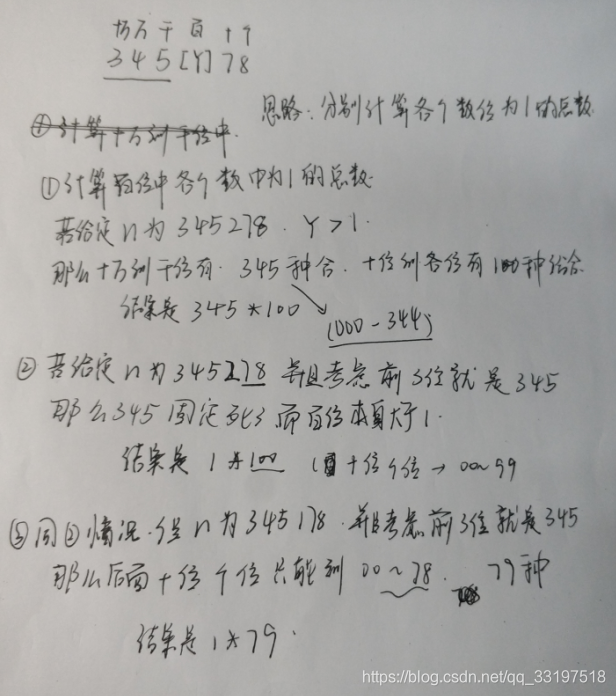 十万万千百十个
345[Y]78
思路:分别计算各个数位为1的总数
①计算十万到千位中
①计算百位中各个数中为1的总数
若给定n为345278. Y>1.
那么十万到千位有.345种合.十位到各位有100种结合
结果是345*100
(000-344)
②若给定n为345278 并且考虑前3位就是345
那么345固定死了而百位本身大于1.
结果是1*100 十位个位→00~99
③同②情况.但n为345178.并且考虑前3位就是345
那么后面十位个位只能到00~78. 79种
结果是1*79.
https://blog.csdn.net/qq_33197518